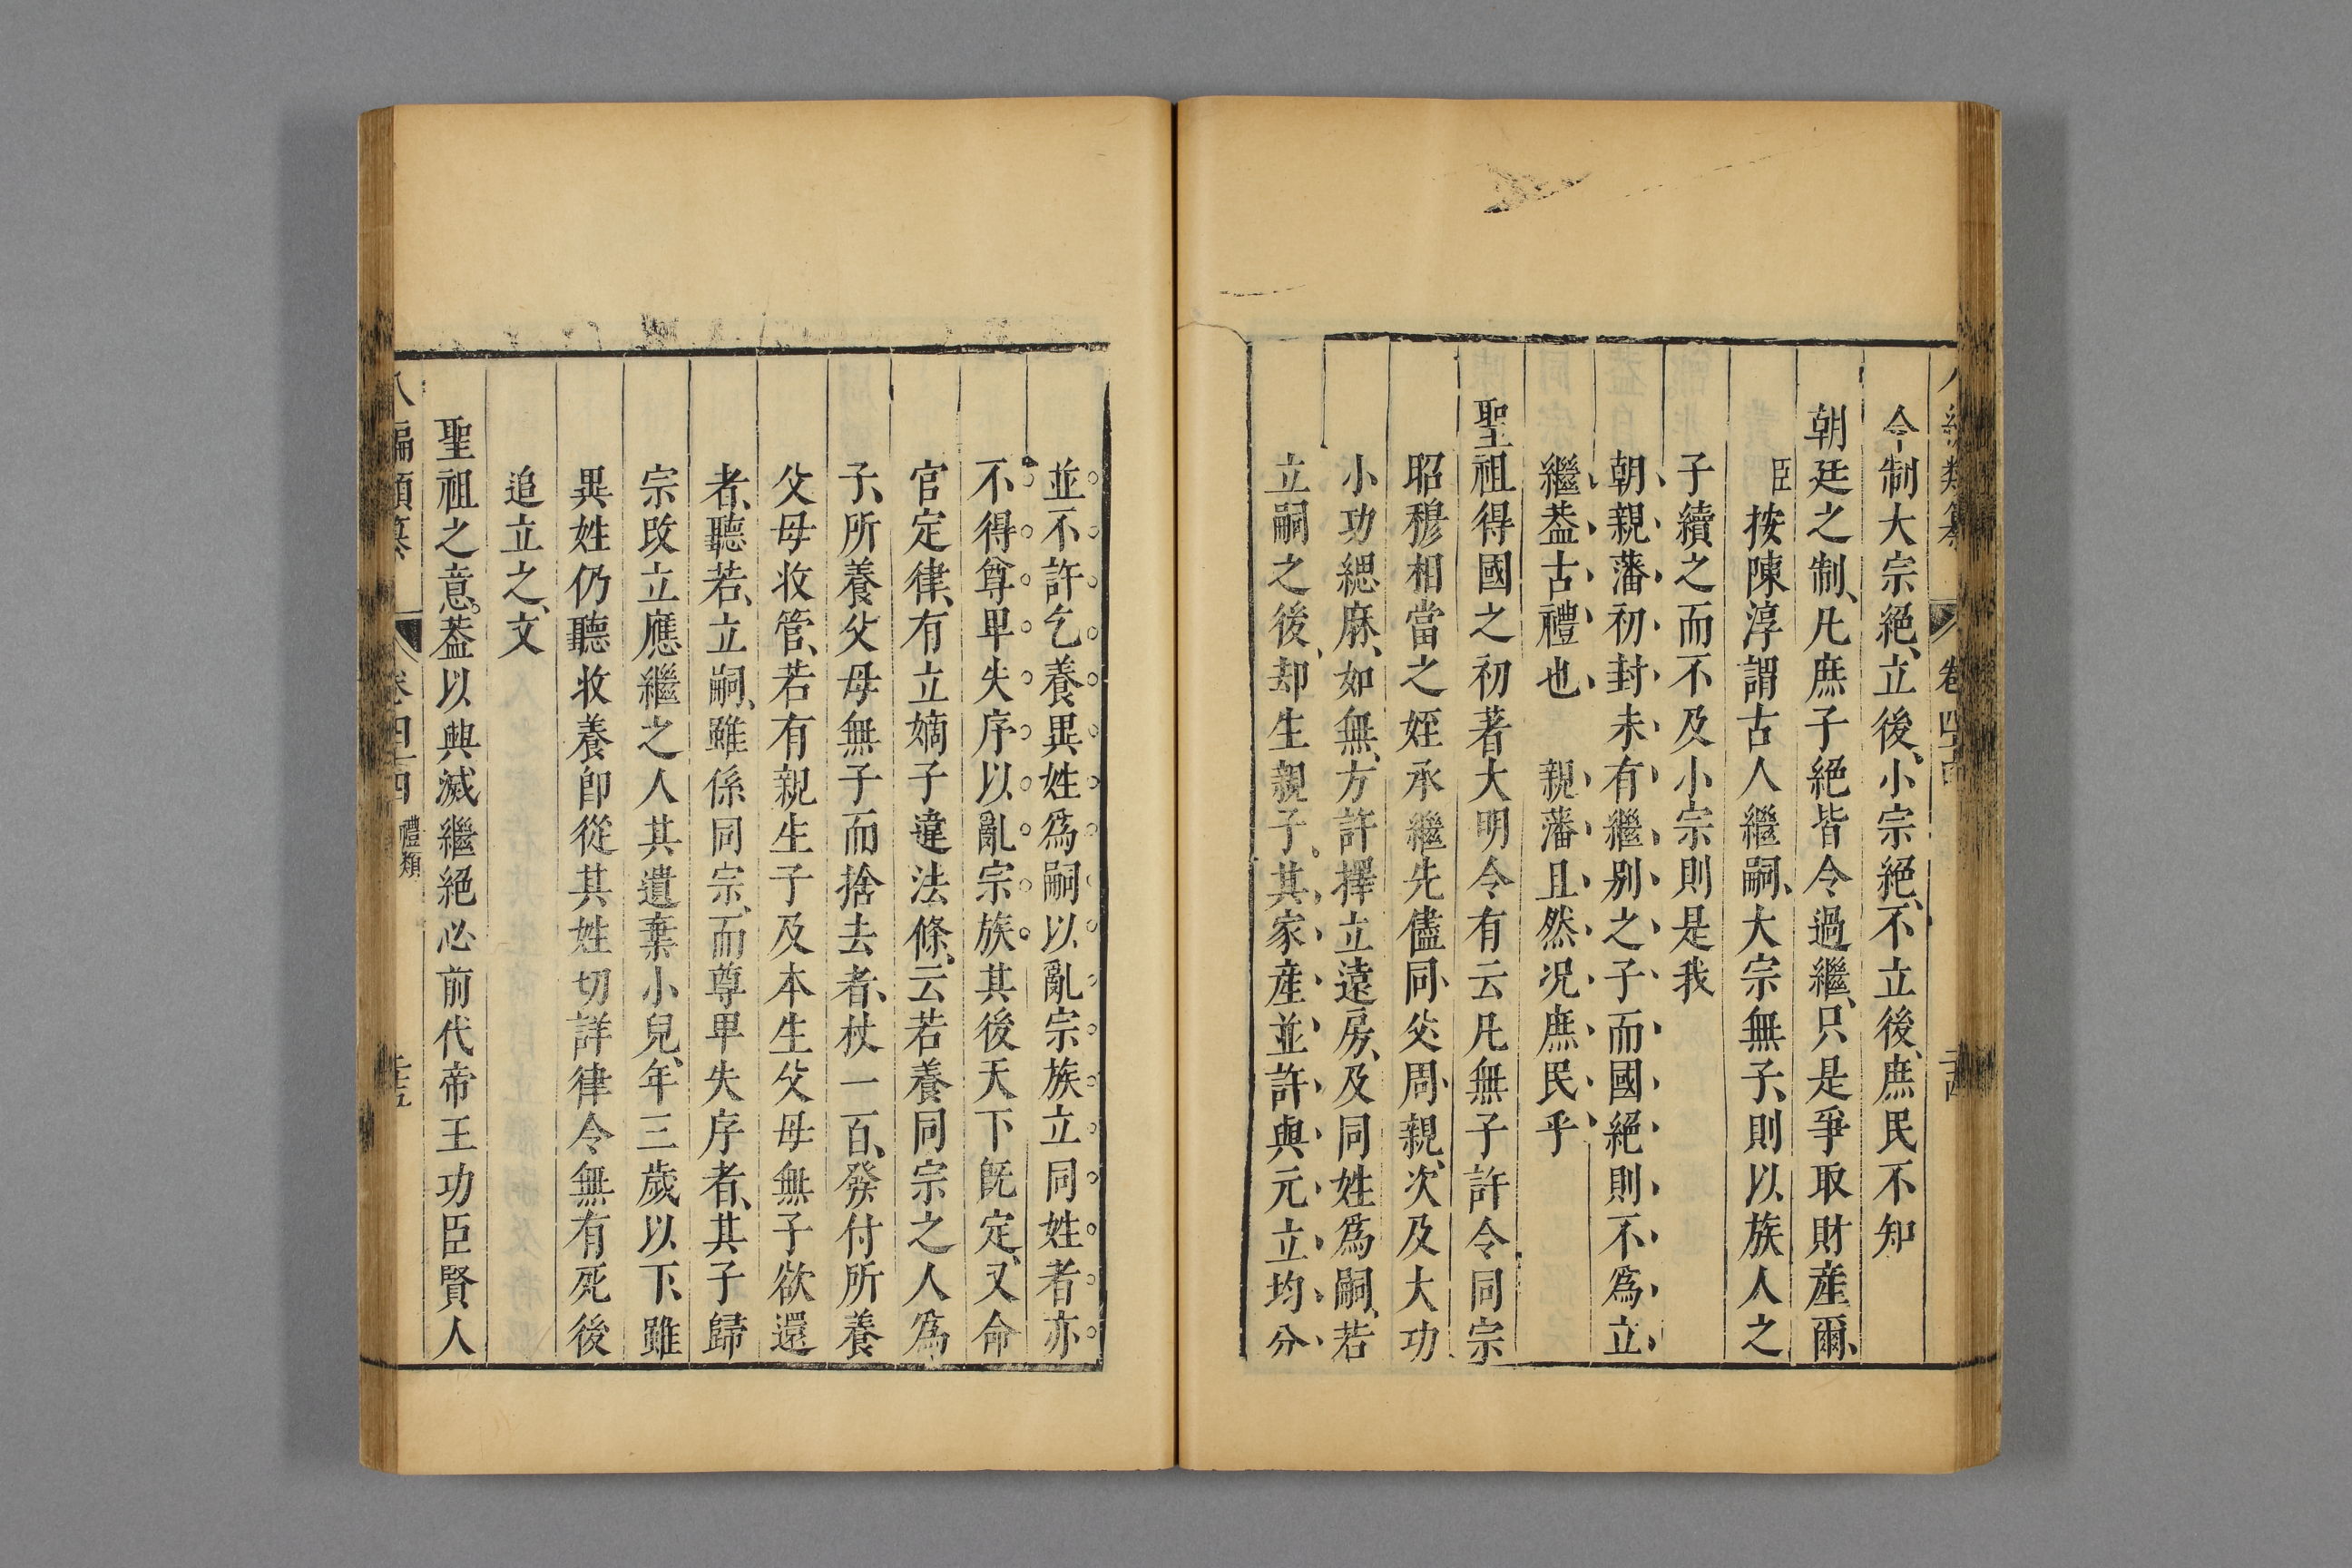 今制大宗絕立後小宗絕不立後庶民不知
朝廷之制凡庶子絕皆令過繼只是爭取財產爾
臣按陳淳謂古人繼嗣大宗無子則以族人之
子續之而不及小宗則是我
朝親藩初封未有繼别之子而國絕則不為立
繼葢古禮也　親藩且然况庶民乎
聖祖得國之初著大明令有云凡無子許令同宗
昭穆相當之姪承繼先儘同父周親次及大功
小功緦麻如無方許擇立遠房及同姓為嗣若
立嗣之後却生親子其家產並許與元立均分
並不許乞養異姓為嗣以亂宗族立同姓者亦
不得尊卑失序以亂宗族其後天下既定又命
官定律有立嫡子違法條云若養同宗之人為
子所養父母無子而捨去者杖一百發付所養
父母收管若有親生子及本生父母無子欲還
者聽若立嗣雖係同宗而尊卑失序者其子歸
宗改立應繼之人其遺棄小兒年三歲以下雖
異姓仍聽收養卽從其姓切詳律令無有死後
追立之文
聖祖之意葢以興滅繼絕必前代帝王功臣賢人
卷四十四 禮類